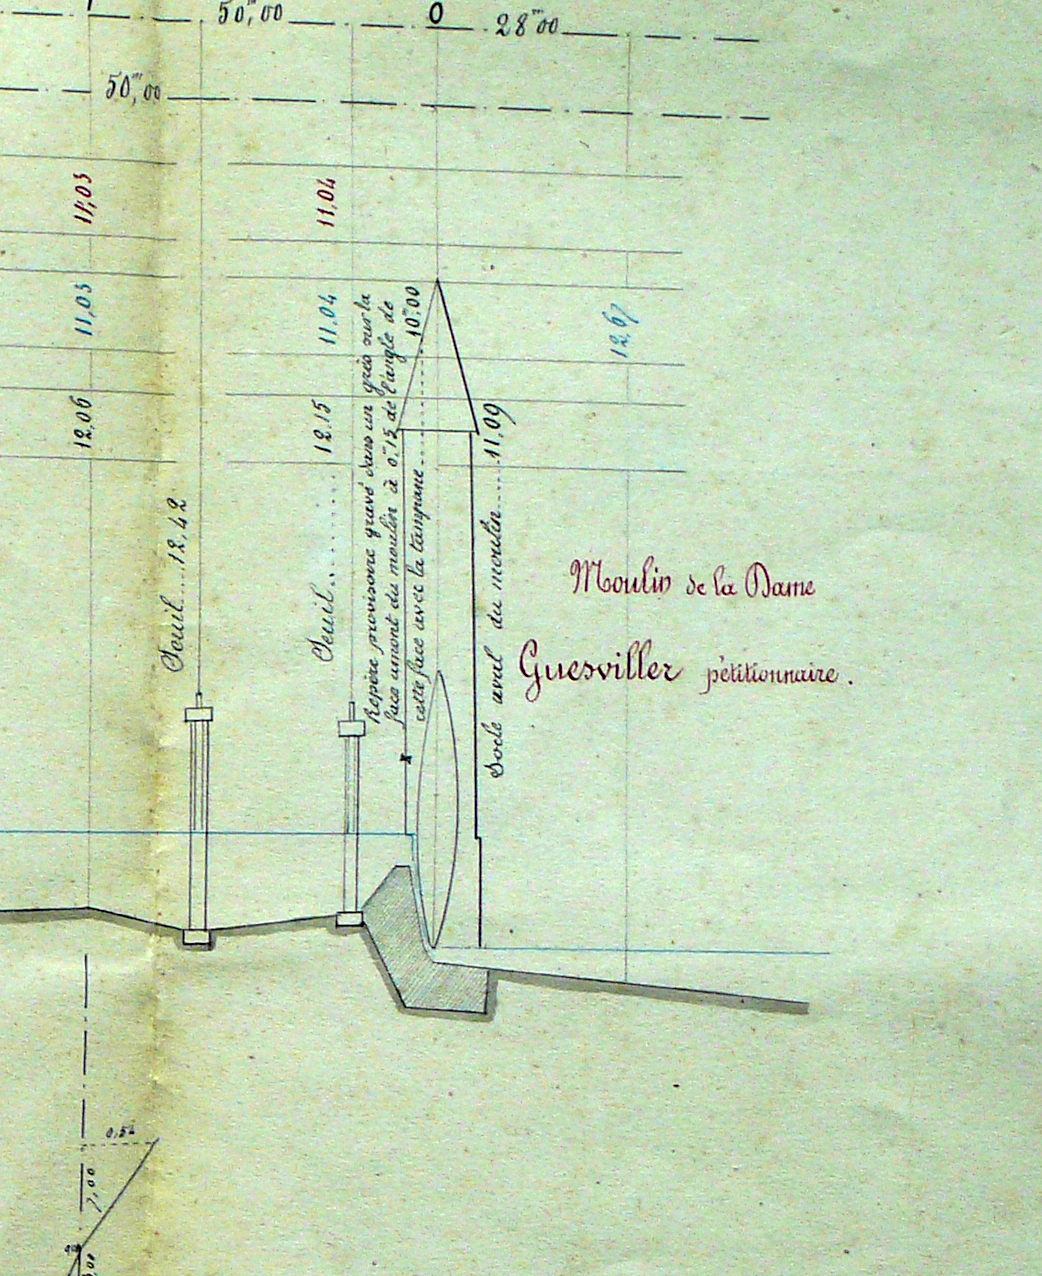 50,ᵐ00
0
28ᵐ00
50,ᵐ00
11,03
11,04
11,03
11.04
12,67
12,06
12.15
Seuil....12,42
Seuil.........
Repère provisoire gravé dans un grès sur la
face amont du moulin à 0ᵐ,15 de l'angle de
cette face avec la tampane.......10ᵐ00
Socle aval du moulin.....11,09
Moulin de la Dame
Guesviller pétitionnaire.
0,54
7,00